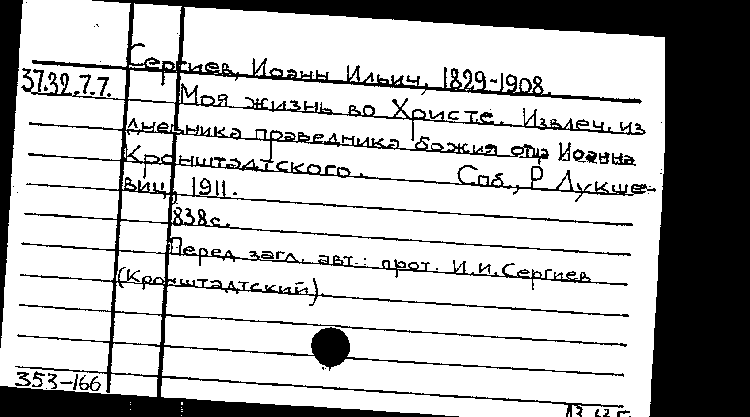 Сергиев, Иоанн Ильич, 1829-1908.
37.39.7.7. Моя жизнь во Христе. Извлеч. из
дневника праведника божия отца Иоанна
Кронштадтского. Спб., Р Лукше-
виц, 1911.
838с.
Перед загл. авт.: прот. И.И.Сергиев
(Кронштадтский).
353-166